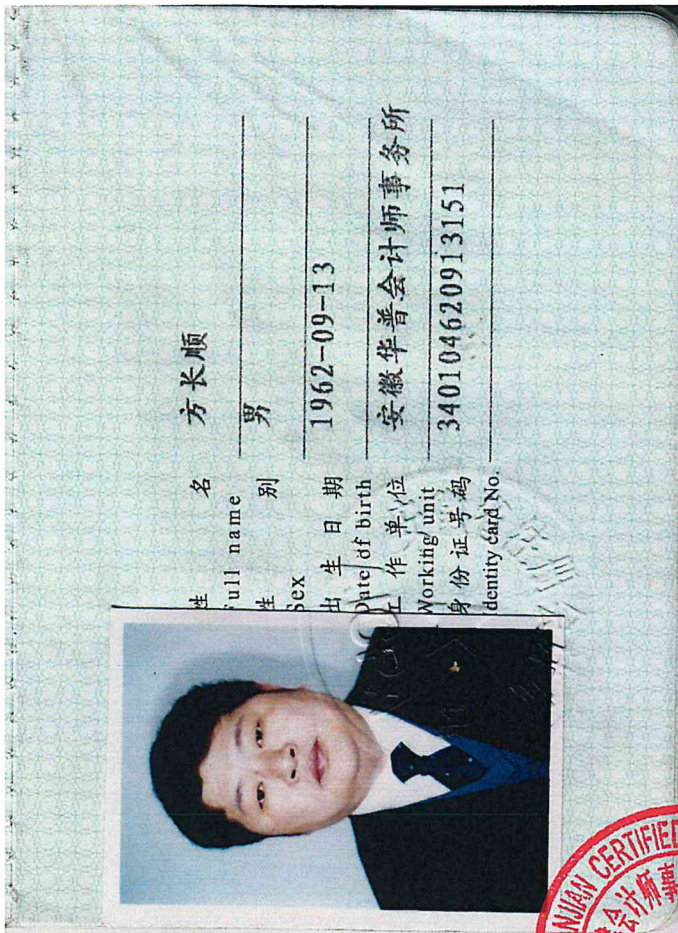 姓名 方长顺
Full name
性别 男
Sex
出生日期 1962-09-13
Date of birth
工作单位 安徽华普会计师事务所
Working unit
身份证号码 340104620913151
dentity card No.
NJIAN CERTIFIED
会计师事